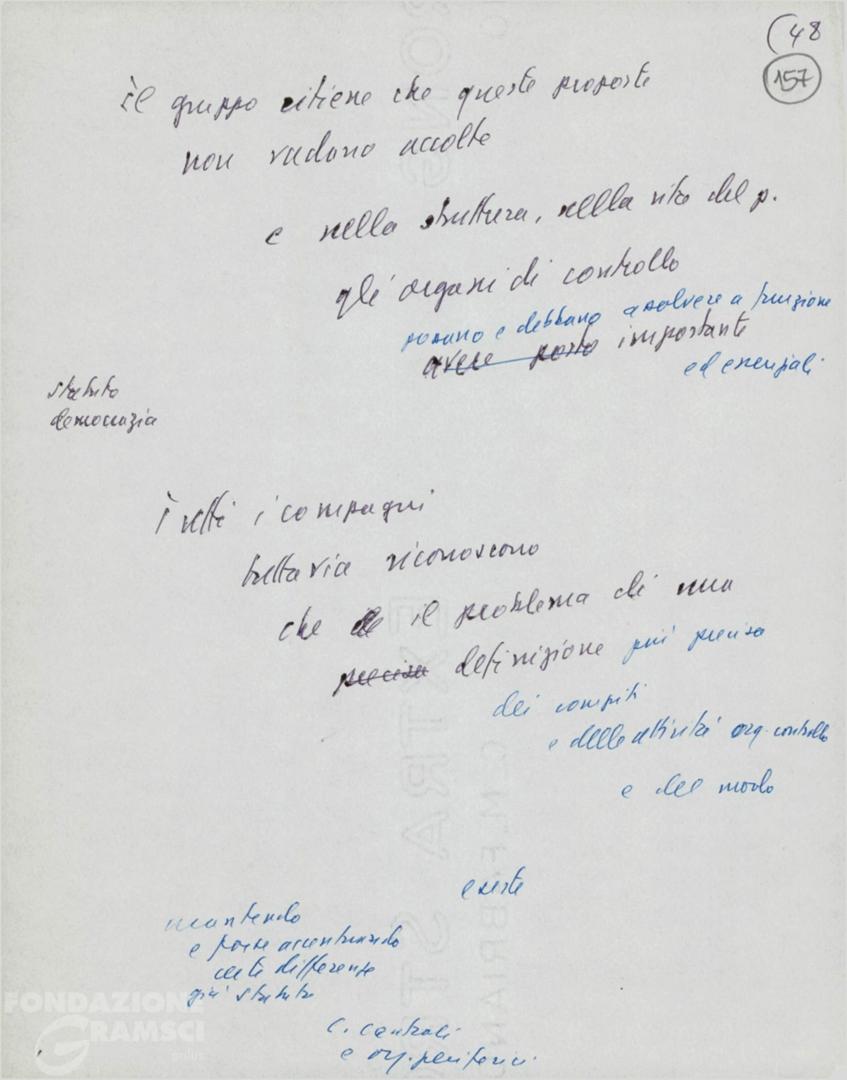 (48
157
il gruppo ritiene che queste proposte
non vadano accolte
e nella struttura, nella vita del p.
gli organi di controllo
possano e debbano assolvere a funzione
avere posto importante
ed essenziali
statuto
democrazia
tutti i compagni
tuttavia riconoscono
che il problema di una
precisa definizione più precisa
dei compiti
e delle attività org. controllo
e del modo
esiste
mantendo
e forse accentuando
certe differenze
già statuto
C. centrali
e org. periferici
FONDAZIONE
GRAMSCI